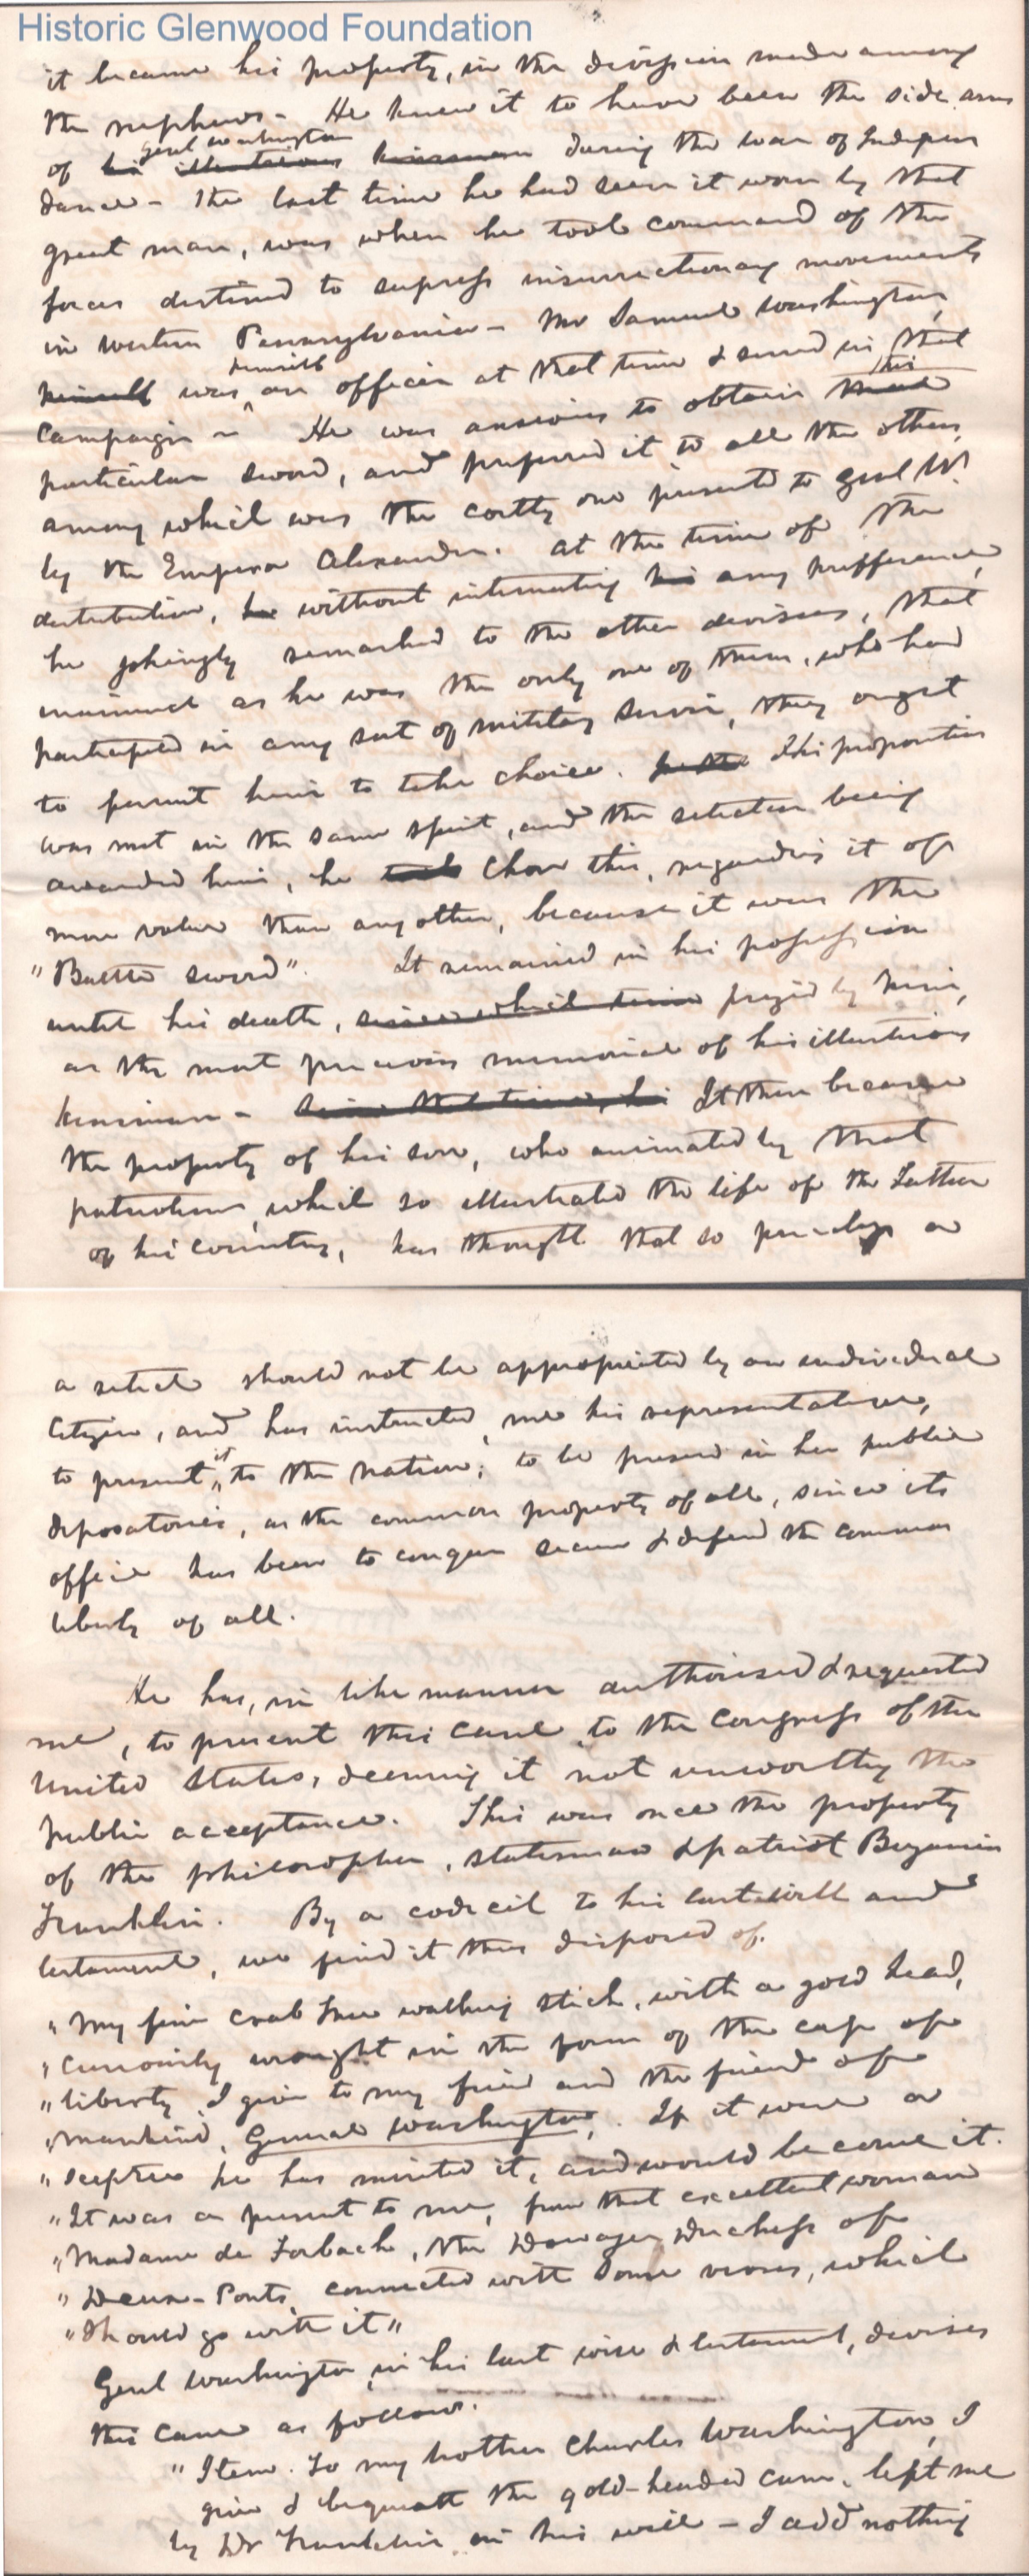 Historic Glenwood Foundation
it became his property, in the division made among
the nephews - He knew it to have been the side arms
Genl Washington
of his illustrious kinsman during the war of Indepen
dance - the last time he had seen it worn by that
great man, was when he took command of the
forces destined to supress insurrectionary movements
in western Pennsylvania - Mr Samuel Washington,
himself
himself was an officer at that time & served in that
this
Campaign - He was anxious to obtain that
particular sword, and prefered it to all the others,
among which was the costly one presented to Genl W.
by the Emperor Alexander. at the time of the
distribution, he without intimating his any prefference,
he jokingly remarked to the other devisees, that
inasmuch as he was the only one of them, who had
participated in any sort of military service, they ought
to permit him to take choice. This proposition
was met in the same spirit, and the selection being
awarded him, he took chose this, regarding it of
more value than any other, because it was the
"Battle sword". It remained in his possession
until his death, since which time prized by him,
as the most precious memorial of his illustrious
kinsman - Since that time, his It then became
the property of his son, who animated by that
patriotism, which so illustrated the life of the Father
of his country, has thought that so precious a
a relick should not be appropriated by an individual
Citizen, and has instructed, me his representative,
it
to present to the nation; to be preserved in her public
depositories, as the common property of all, since its
office has been to conquer secure & defend the common
liberty of all.
He has, in like manner authorised & requested
me, to present this Cane to the Congress of the
United States, deeming it not unworthy the
public acceptance. This was once the property
of the philosopher, statesman & patriot Benjamin
Franklin. By a codicil to his last will and
testament, we find it thus disposed of.
"My fine crab tree walking stick, with a gold head,
"curiously wrought in the form of the cap of
"liberty, I give to my friend and the friend of
"mankind, General Washington. If it were a
"Sceptre he has merited it, and would become it.
"It was a present to me, from that excellent woman
"Madame de Forbach, the Dowager Duchess of
"Deux-Ponts, connected with some verses, which
"should go with it"
Genl Washington, in his last will & testament, devises
this Cane as follows.
"Item. To my brother Charles Washington, I
give & bequeath the gold-headed cane, left me
by Dr Franklin, in his will - I add nothing